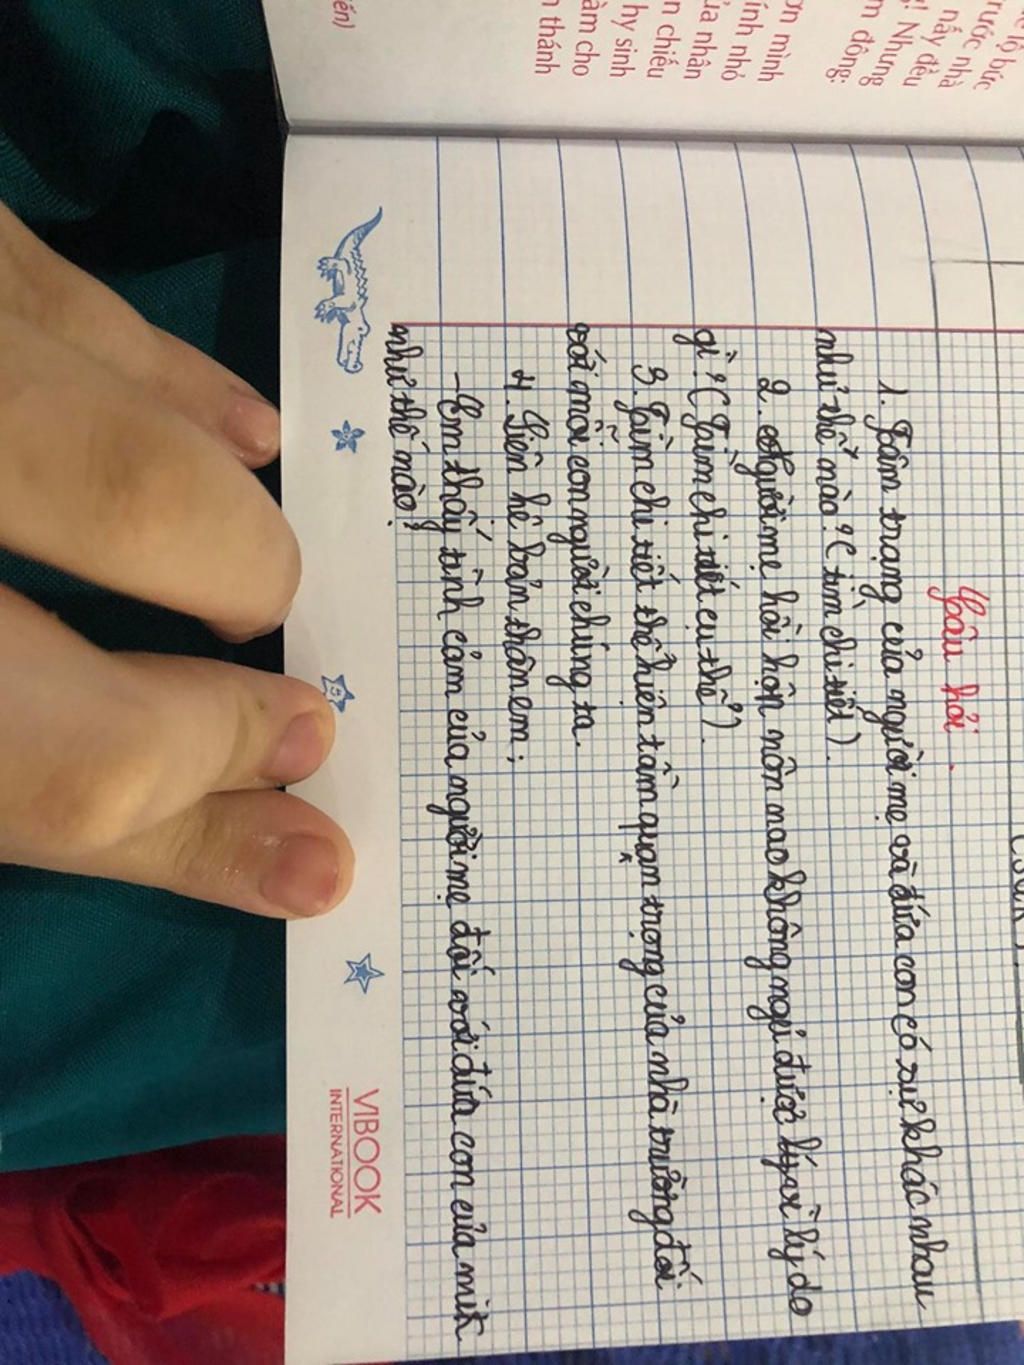 ến)
ơn mình
ính nhỏ
ủa nhân
n chiếu
hy sinh
àm cho
n thánh
bức
rước nhà
nầy đều
! Nhưng
m đông:
Câu hỏi.
1. Tâm trạng của người mẹ và đứa con có sự khác nhau
như thế nào? (tìm chi tiết).
2. Người mẹ hồi hộn nôn nao không ngủ được vì lý do
gì? (Tìm chi tiết cụ thể).
3. Tìm chi tiết thể hiện tầm quan trọng của nhà trường đối
với mỗi con người chúng ta.
4. Liên hệ bản thân em:
- Em thấy tình cảm của người mẹ đối với đứa con của mìh
như thế nào?
VIBOOK
INTERNATIONAL